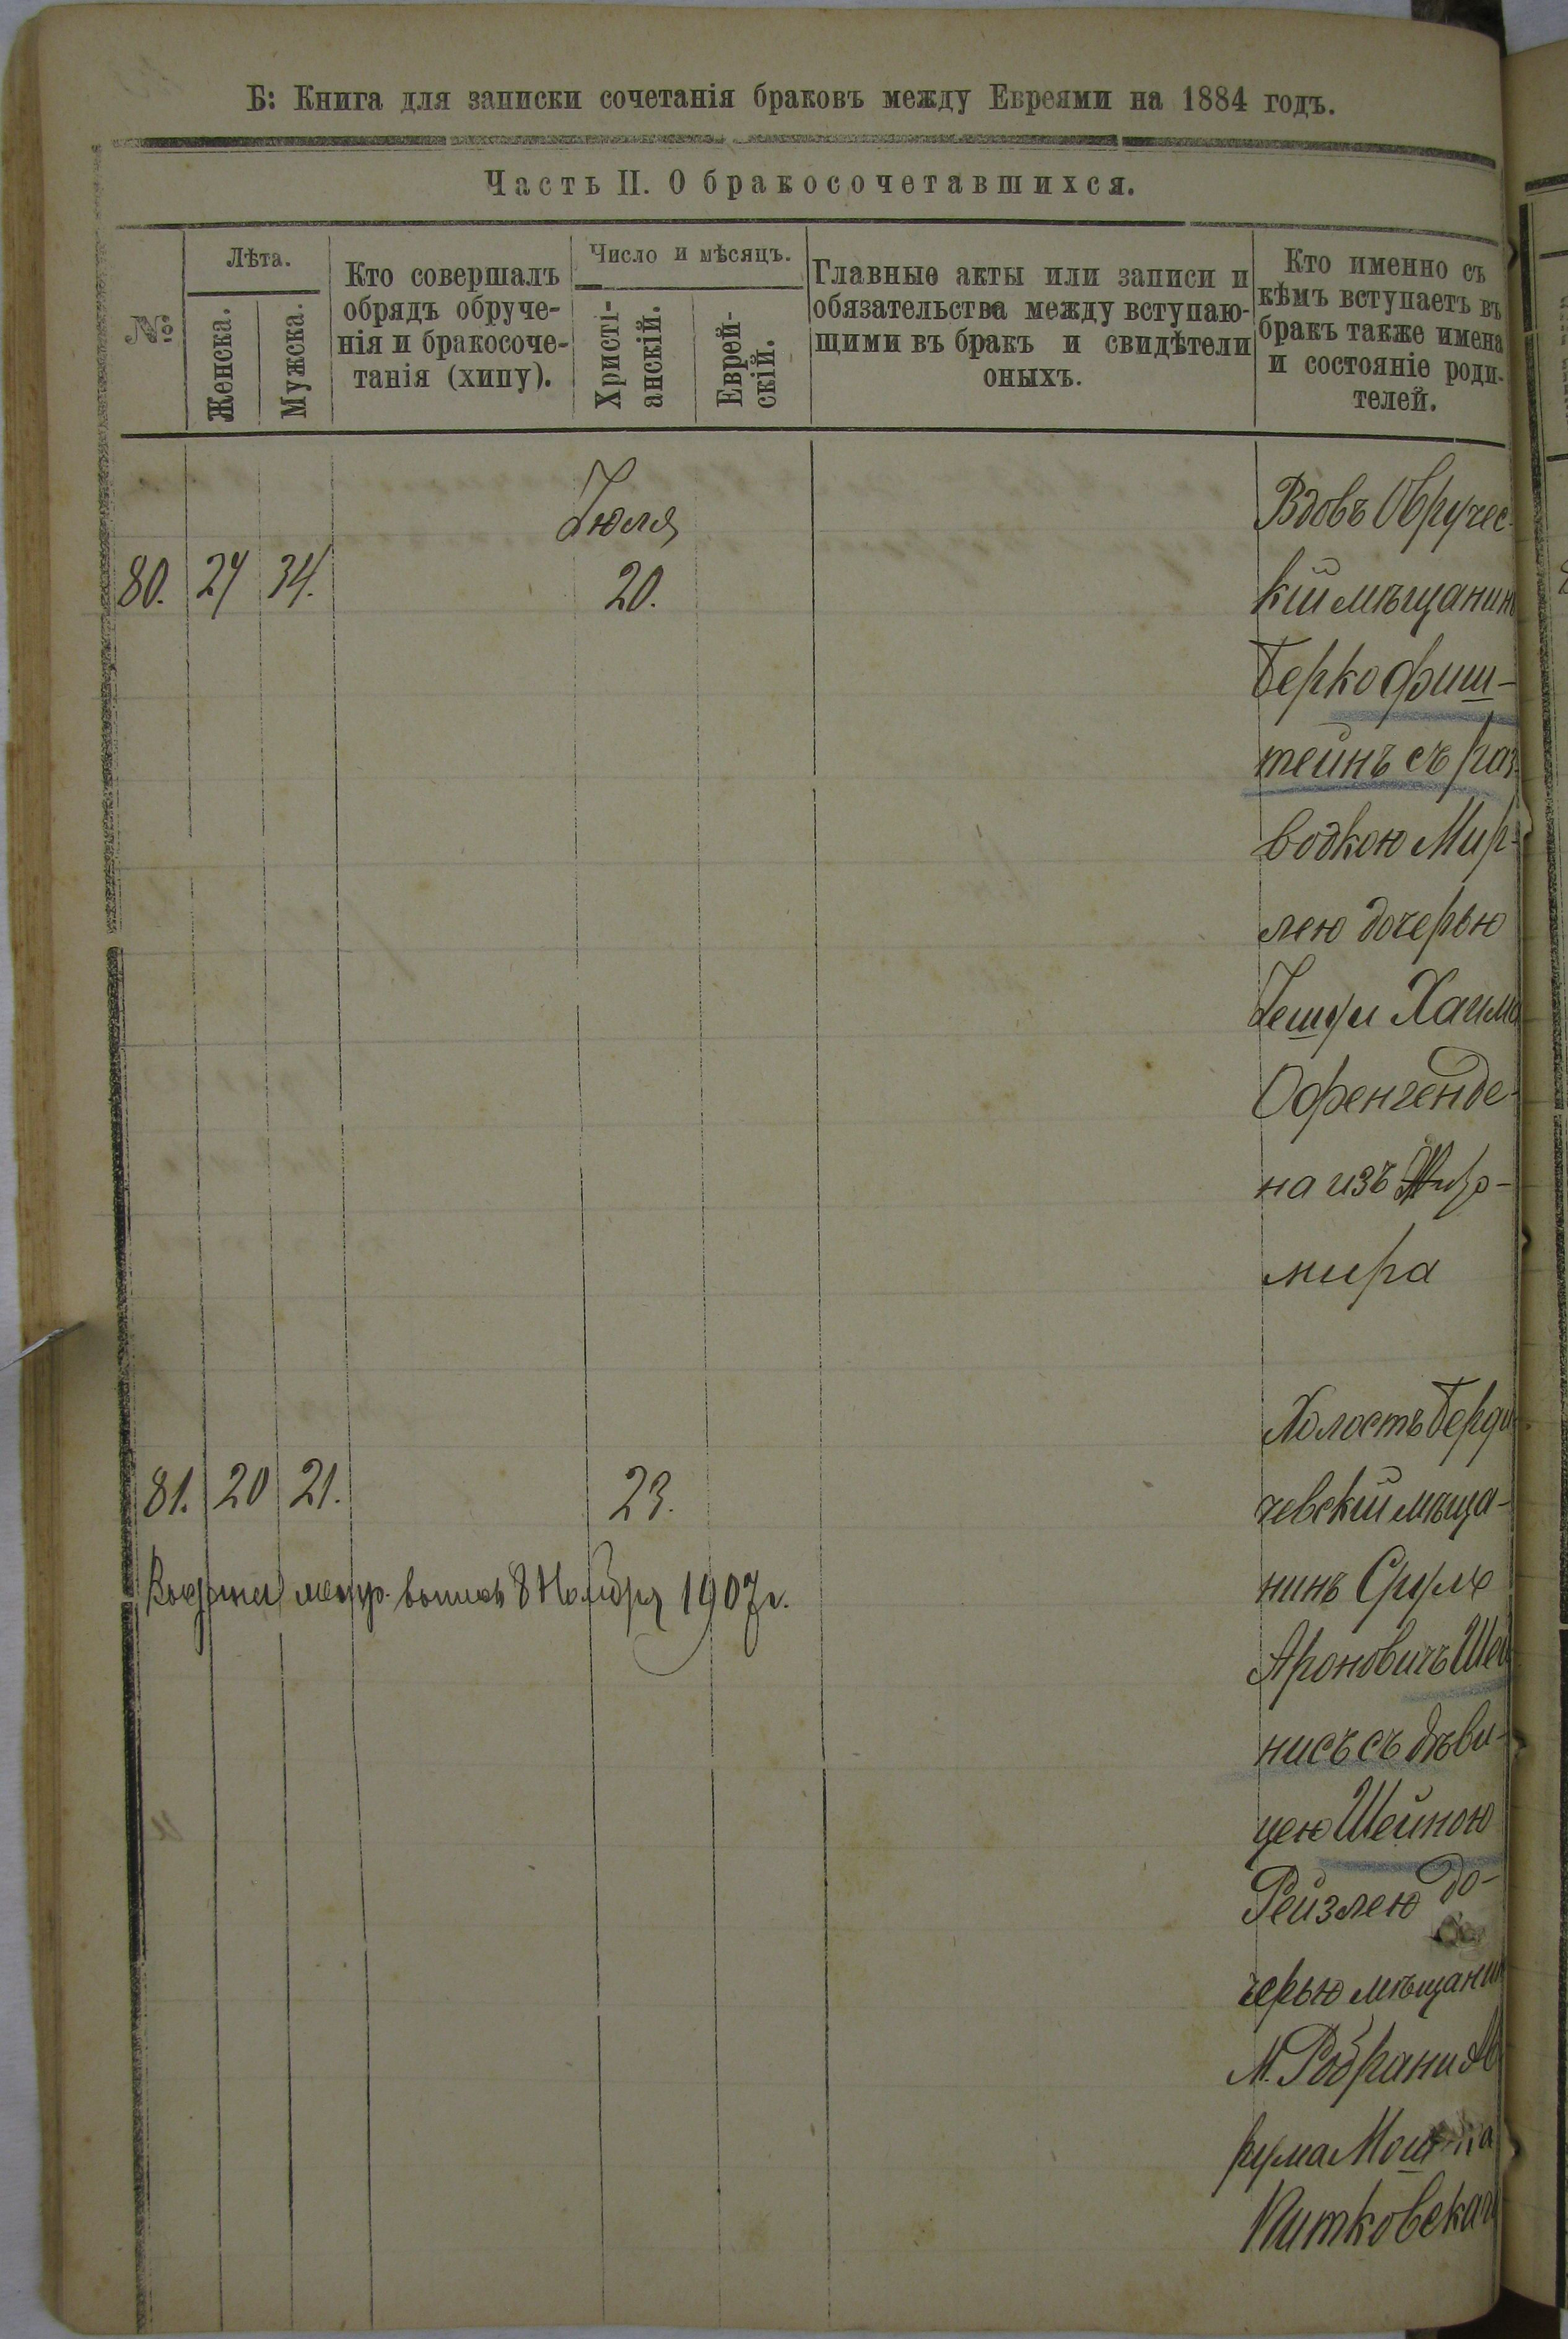 Б: Книга для записки сочетанія браковъ между Евреями на 1884 годъ.
Часть II. О бракосочетавшихся.
№
Лѣта.
Женска.
Мужска.
Кто совершалъ
обрядъ обруче-
нія и бракосоче-
танія (хипу).
Число и мѣсяцъ.
Христі-
анскій.
Еврей-
скій.
Главные акты или записи и
обязательства между вступаю-
щими въ бракъ и свидѣтели
оныхъ.
Кто именно съ
кѣмъ вступаетъ въ
бракъ также имена
и состояніе роди-
телей.
Іюля
80. 24 34. 20.
Вдовъ Овручес-
кій мѣщанинъ
Берко Фиш-
тейнъ съ раз-
водкою Мир-
лею дочерью
Хаима
Офенгенде-
на изъ
мира
81. 20 21. 23.
Холостъ Берди-
чевскій мѣща-
нинъ Сруль
Ароновичъ Шей
нисъ съ дѣви-
цею Шейною
Рейзлею до-
черью мѣщанин
М.
рума
Китковскаго
Выдана метр. выпись 8 Ноября 1907 г.